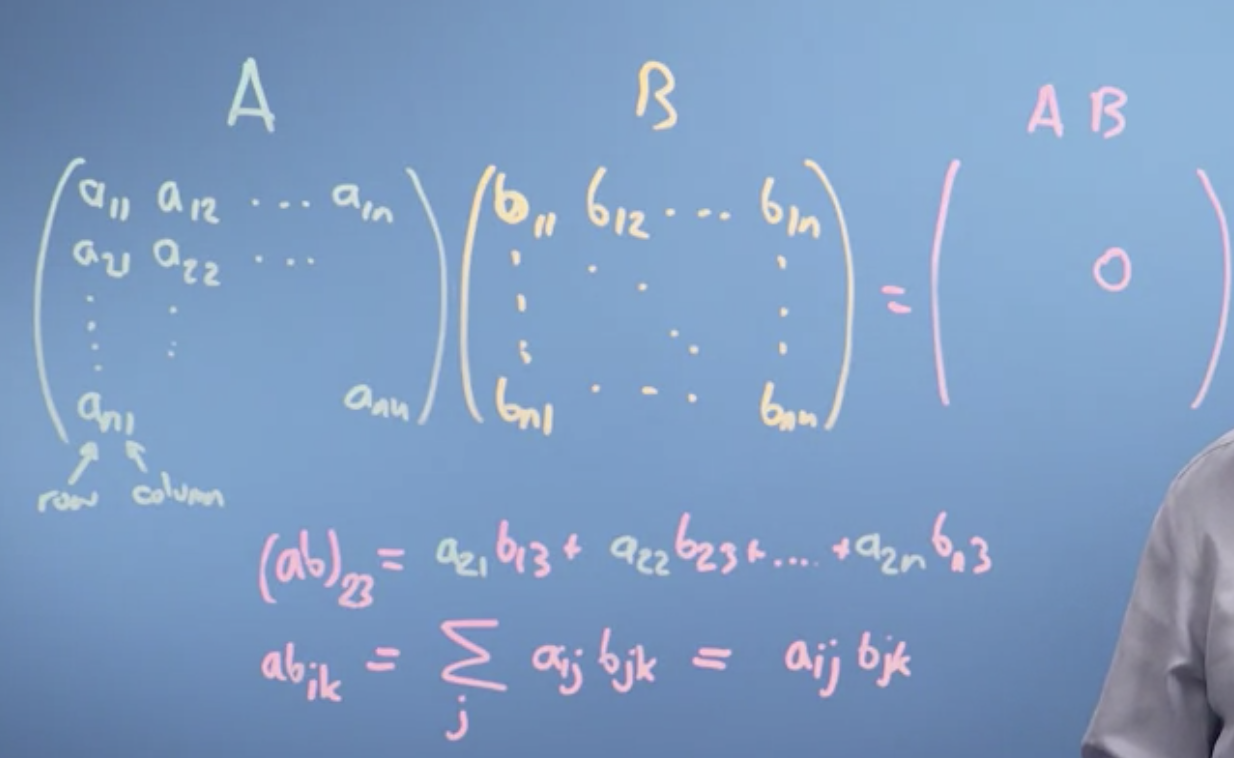 A B A B
( a₁₁ a₁₂ ... a₁ₙ ) ( b₁₁ b₁₂ ... b₁ₙ ) = ( O )
a₂₁ a₂₂ ...
aₙ₁ aₙₙ bₙ₁ ... bₙₙ
row column
(ab)₂₃ = a₂₁b₁₃ + a₂₂b₂₃ + .... + a₂ₙbₙ₃
abᵢₖ = Σⱼ aᵢⱼ bⱼₖ = aᵢⱼ bⱼₖ